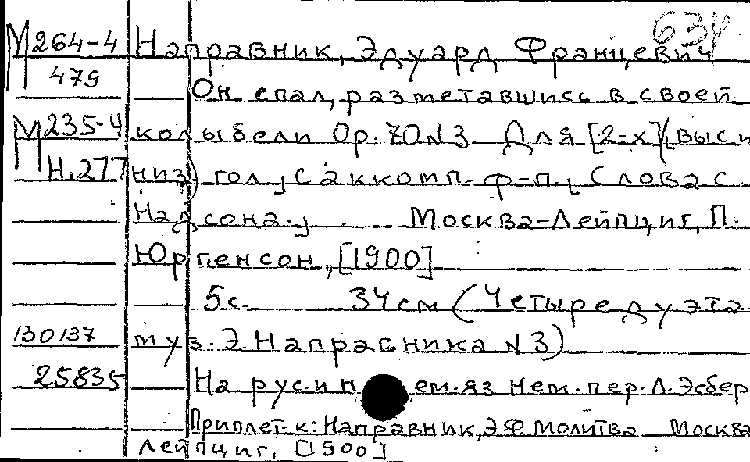 63г
М264-4 Направник, Эдуард Францевич
479 Он спал, разметавшись в своей
М235-4 колыбели Ор. 70 №3 Для [2-х] (выси
Н.277 низ) гол, с аккомп. ф-п., Слова С
Надсона., Москва-Лейпциг, П.
Юргенсон, [1900]
5с. 34см (Четыре дуэта
130137 муз. Э Направника №3)
25835 На рус. и нем. яз нем. пер. Л. Эсбер
Приплет. к: Направник, Э.Ф. Молитва Москва
Лейпциг, [1900]